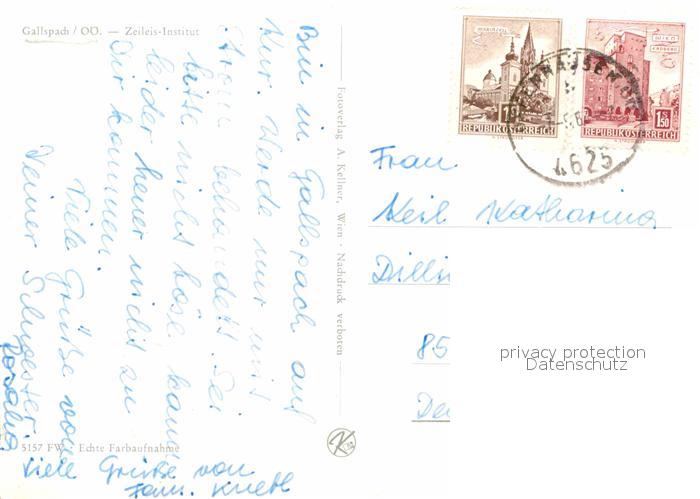 Gallspach / OÖ. — Zeileis-Institut
Bin in Gallspach auf
Kur. Werde nur mit
Strom behandelt. Sei
bitte nicht böse kann
leider heuer nicht zu
Dir kommen.
Viele Grüße von
Deiner Schwester
Rosalia
Viele Grüße von
Fam. Knebl
5157 FW · Echte Farbaufnahme
Fotoverlag A. Kellner, Wien · Nachdruck verboten
K
MARIAZELL
REPUBLIK ÖSTERREICH
WIEN
ERDBERG
1.50
S
REPUBLIK ÖSTERREICH
4625
Frau
Keil Katharina
Dilli
85
De
privacy protection
Datenschutz